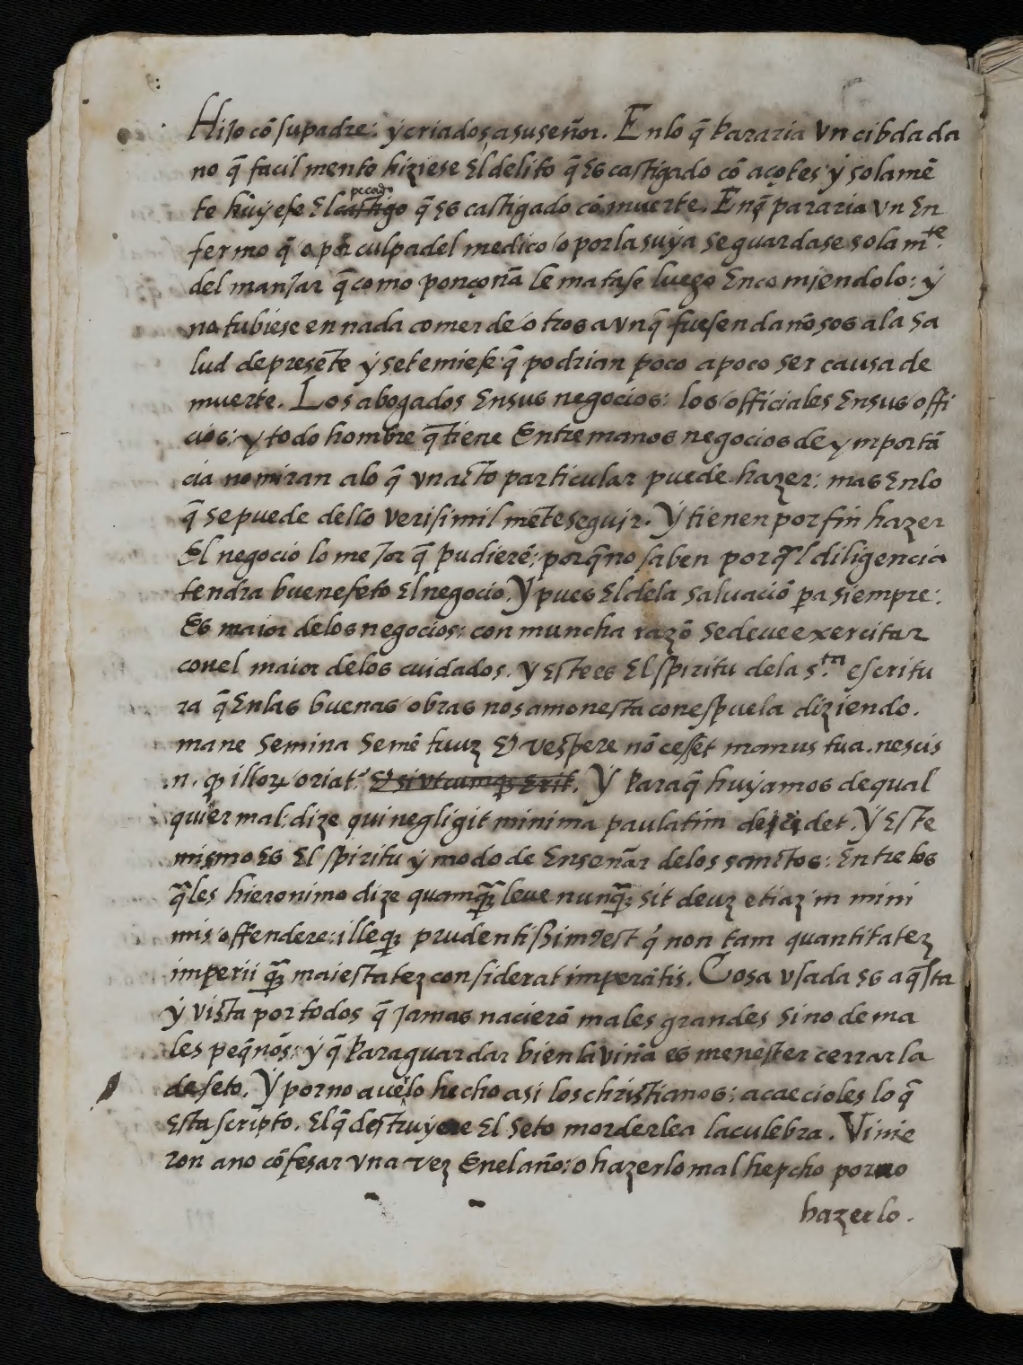 Hijo cō su padre: y criados, a su señor. En lo q̄ pararia vn cibdada
no q̄ facil mente hiziese El delito q̄ es castigado cō açotes y solamē
te huyese El castigo pecado q̄ es castigado cō muerte. En q̄ pararia vn En
fermo q̄ o por culpa del medico / o por la suya se guardase sola mte.
del manjar q̄ como ponçoña le matase luego En comiendolo: y
no tubiese en nada comer de otros avnq̄ fuesen dañosos a la sa
lud de presēte y se temiese q̄ podrian poco a poco ser causa de
muerte. Los abogados En sus negocios: los officiales En sus offi
cios: y todo hombre q̄ tiene Entre manos negocios de ymportā
cia no miran a lo q̄ vn acto particular puede hazer: mas En lo
q̄ se puede dello verisimil mēte seguir. Y tienen por fin hazer
El negocio lo mejor q̄ pudierē: porq̄ no saben por q̄l diligencia
tendra buen efeto El negocio. Y pues El de la saluaciō pa siempre:
Es maior de los negocios: con muncha razō se deve exercitar
con el maior de los cuidados. y Este es El spiritu de la s.ta escritu
ra q̄ En las buenas obras nos amonesta con espuela diziendo.
mane semina semē tuuz & vespere nō cesset manus tua. nescis
.n. qp illoꝝ oriat.r & si vtrumqz Erit. Y para q̄ huyamos de qual
quier mal: dize qui negligit minima paulatim decidet. Y Este
mismo es El spiritu y modo de Enseñar de los sanctos: Entre los
q̄les hieronimo dize quamq̄z leve nunq̄z sit deuz etiaz in mini
mis offendere: illeqz prudentissim9 est q́ non tam quantitatez
imperii q̄z maiestatez considerat imperātis. Cosa vsada es aq̄sta
y vista por todos q̄ jamas nacierō males grandes sino de ma
les peq̄nos: y q̄ para guardar bien la viña es menester cerrar la
de seto. Y por no avello hecho asi los christianos: acaecioles lo q̄
Esta scripto. El q̄ destruyere El seto morderlea la culebra. Vinie
ron a no cōfesar vna vez En el año: o hazerlo mal hecho por no
hazerlo.